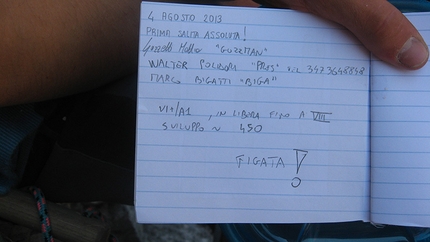 4 AGOSTO 2013
PRIMA SALITA ASSOLUTA!
"GUZZMAN"
WALTER POLIDORI "PRES"
MARCO BIGATTI "BIGA"
VI+/A1, IN LIBERA FINO A VIII
SVILUPPO ~ 450
FIGATA!